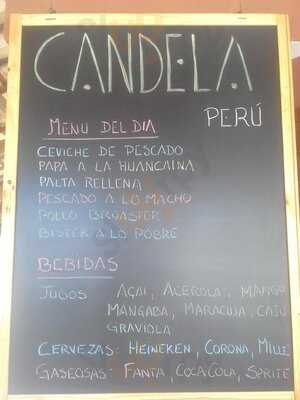 CANDELA
PERÚ
MENU DEL DIA
CEVICHE DE PESCADO
PAPA A LA HUANCAINA
PALTA RELLENA
PESCADO A LO MACHO
POLLO BROASTER
BISTEK A LO POBRE
BEBIDAS
JUGOS AÇAI, ACEROLA, MANGO
MANGABA, MARACUJA, CAJU
GRAVIOLA
CERVEZAS: HEINEKEN, CORONA, MILLE
GASEOSAS: FANTA, COCA COLA, SPRITE